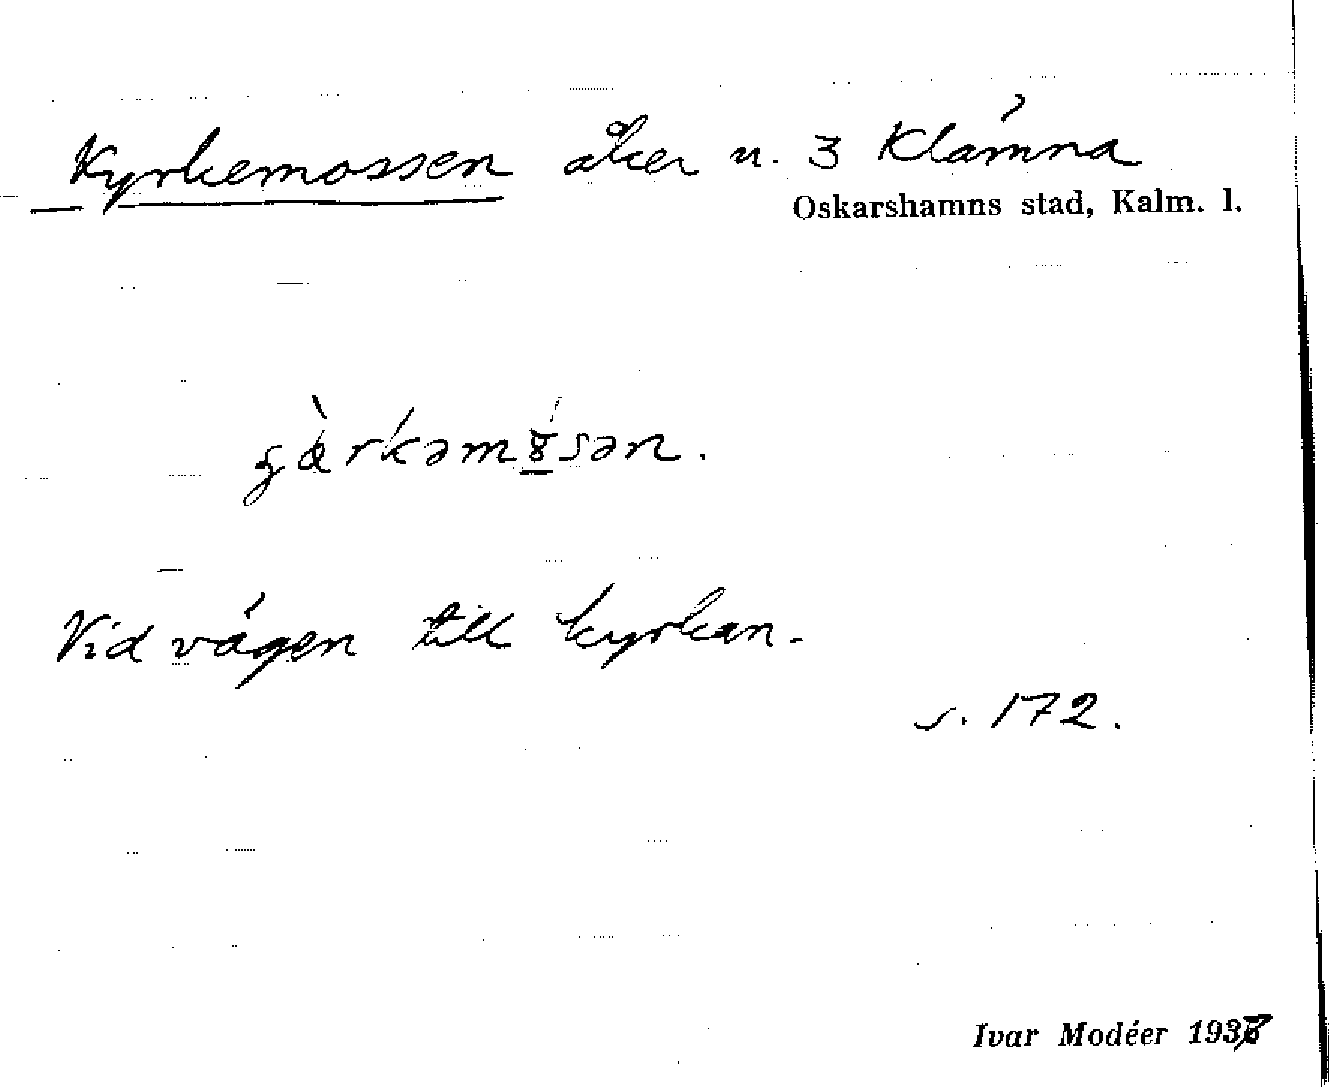 Kyrkemossen åker u. 3 Klämna
Oskarshamns stad, Kalm. l.
Vid vägen till kyrkan.
s. 172.
Ivar Modéer 1937